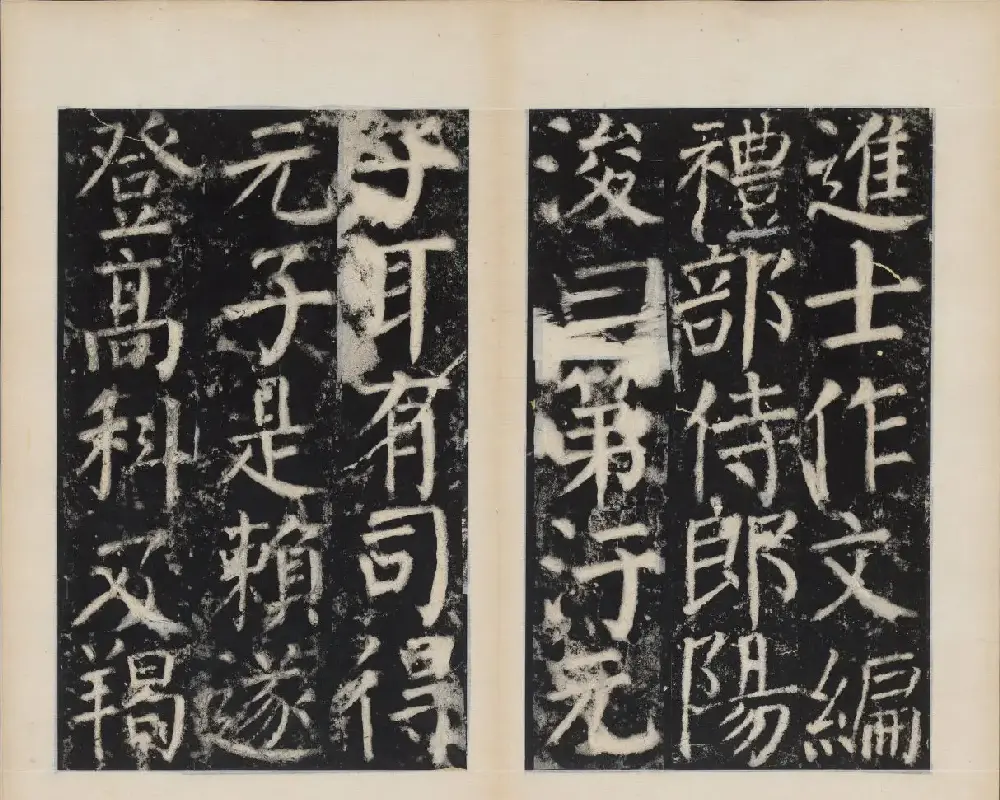 進士作文編
禮部侍郎陽
浚曰第汙元
子耳有司得
元子是賴遂
登高科及羯